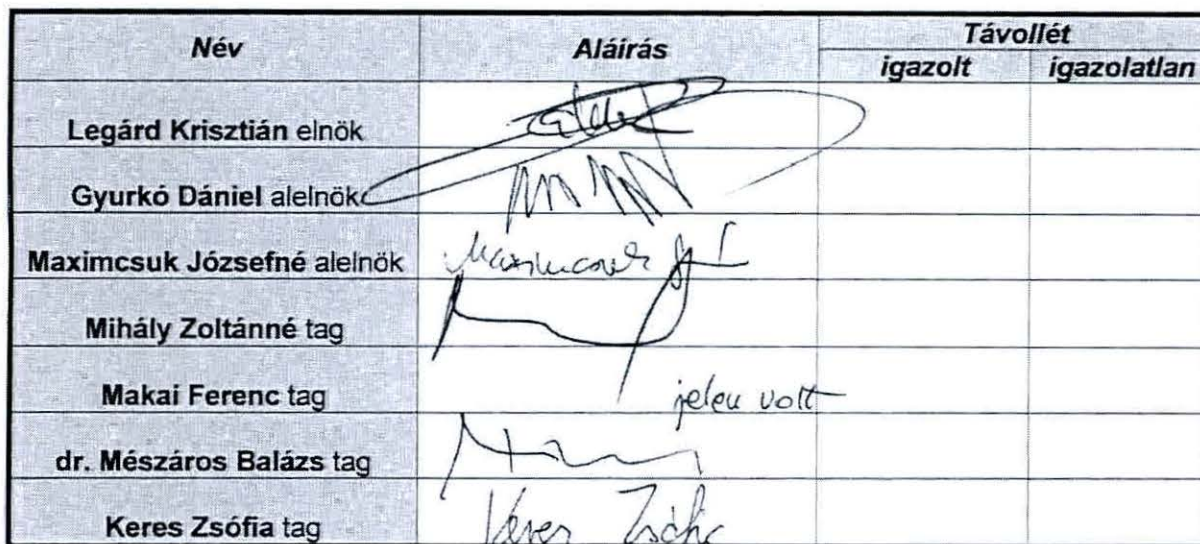 Név Aláírás Távollét
igazolt igazolatlan
Legárd Krisztián elnök
Gyurkó Dániel alelnök
Maximcsuk Józsefné alelnök
Mihály Zoltánné tag
Makai Ferenc tag jelen volt
dr. Mészáros Balázs tag
Keres Zsófia tag Keres Zsófia